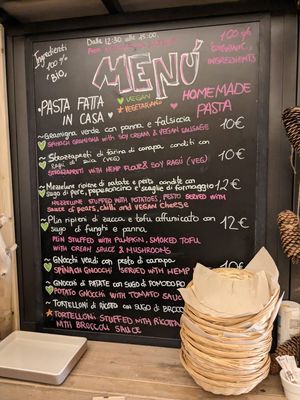 Ingredienti
100%
BIO,
Dalle 12:30 alle 15:00,
100%
ORGANIC
INGREDIENTS
MENÚ
VEGAN
VEGETARIANO
• PASTA FATTA
IN CASA
HOMEMADE
PASTA
~ Gramigna verde con panna e salsiccia
SPINACH GRAMIGNA WITH SOY CREAM & VEGAN SAUSAGE
10€
~ Strozzapreti di farina di canapa conditi con
Ragù di soia (VEG)
STROZZAPRETI WITH HEMP FLOUR & SOY RAGÙ (VEG)
10€
~ Mezzelune ripiene di patate e pesto condite con
sugo di pere, peperoncino e scaglie di formaggio
MEZZELUNE STUFFED WITH POTATOES, PESTO SERVED WITH
SAUCE OF PEARS, CHILLI AND VEGAN CHEESE
12€
~ Plin ripieni di zucca e tofu affumicato con
sugo di funghi e panna
PLIN STUFFED WITH PUMPKIN, SMOKED TOFU
WITH CREAM SAUCE & MUSHROOMS
12€
~ Gnocchi verdi con pesto di canapa
SPINACH GNOCCHI SERVED WITH HEMP
10€
~ GNOCCHI DI PATATE CON SUGO DI POMODORO
POTATO GNOCCHI WITH TOMATO SAUC
~ TORTELLONI DI RICOTTA CON SUGO DI BROCC
TORTELLONI STUFFED WITH RICOTTA
WITH BROCCOLI SAUCE